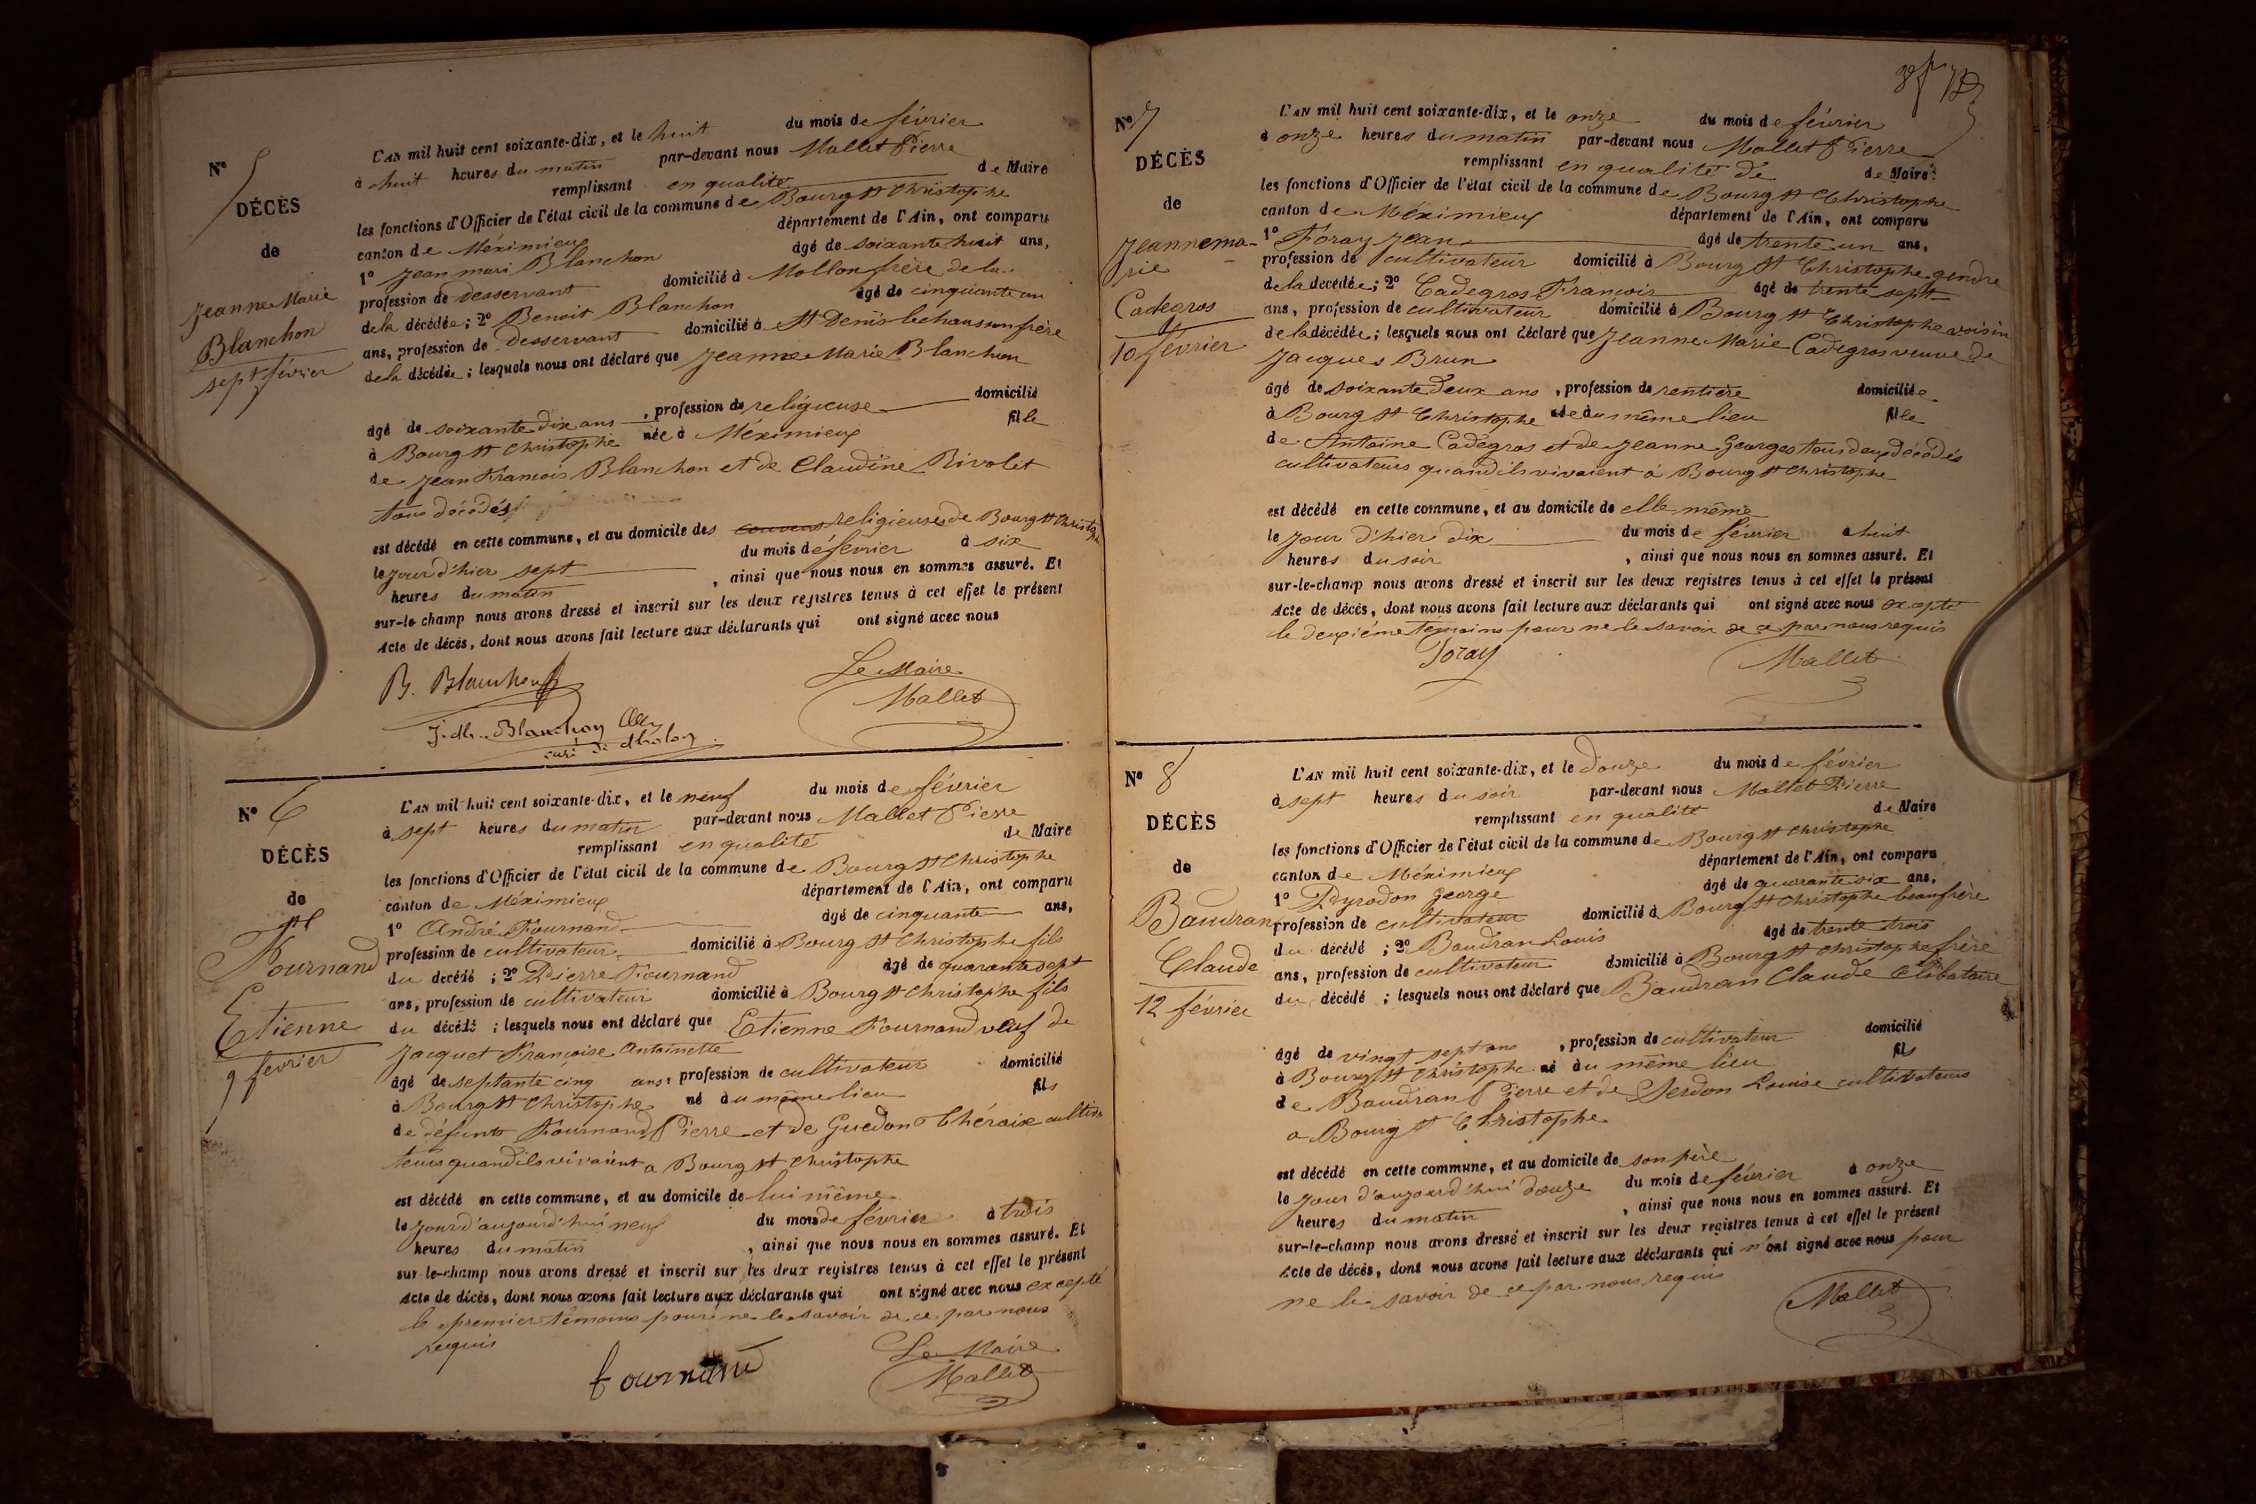 N° 5
DÉCÈS
de
Jeanne Marie
Blanchon
sept février
L'AN mil huit cent soixante-dix, et le huit du mois de février
à huit heures du matin par-devant nous Mallet Pierre
remplissant en qualité de Maire
les fonctions d'Officier de l'état civil de la commune de Bourg St Christophe
canton de Méximieux département de l'Ain, ont comparu
1° Jean mari Blanchon âgé de soixante huit ans,
profession de desservant domicilié à Mollon frère de la
de la décédée ; 2° Benoit Blanchon âgé de cinquante un
ans, profession de desservant domicilié à St Denis le chausson frère
de la décédée ; lesquels nous ont déclaré que Jeanne Marie Blanchon
âgé de soixante dix ans, profession de religieuse domicilié
à Bourg St Christophe née à Méximieux fille
de Jean François Blanchon et de Claudine Rivolet
tous décédés
est décédé en cette commune, et au domicile des couvent religieuses de Bourg St Christophe
le jour d'hier sept du mois de février à six
heures du matin, ainsi que nous nous en sommes assuré. Et
sur-le champ nous avons dressé et inscrit sur les deux registres tenus à cet effet le présent
Acte de décès, dont nous avons fait lecture aux déclarants qui ont signé avec nous
B. Blanchon
Le Maire
Mallet
J. M. Blanchon
curé de Molon
N° 6
DÉCÈS
de
Fournand
Etienne
9 février
L'AN mil huit cent soixante-dix, et le neuf du mois de février
à sept heures du matin par-devant nous Mallet Pierre
remplissant en qualité de Maire
les fonctions d'Officier de l'état civil de la commune de Bourg St Christophe
canton de Méximieux département de l'Ain, ont comparu
1° André Fournand âgé de cinquante ans,
profession de cultivateur domicilié à Bourg St Christophe fils
du décédé ; 2° Pierre Fournand âgé de quarante sept
ans, profession de cultivateur domicilié à Bourg St Christophe fils
du décédé ; lesquels nous ont déclaré que Etienne Fournand veuf de
Jacquet Françoise Antoinette
âgé de septante cinq ans, profession de cultivateur domicilié
à Bourg St Christophe né du même lieu fils
de défunts Fournand Pierre et de Guedon Théraise cultiva
teurs quand ils vivaient a Bourg St Christophe
est décédé en cette commune, et au domicile de lui même
le jour d'aujourd'hui neuf du mois de février à trois
heures du matin, ainsi que nous nous en sommes assuré. Et
sur-le-champ nous avons dressé et inscrit sur les deux registres tenus à cet effet le présent
Acte de décès, dont nous avons fait lecture aux déclarants qui ont signé avec nous excepté
le premier témoins pour ne le savoir de ce par nous
requis
fournand
Le Maire
Mallet
N° 7
DÉCÈS
de
Jeanne ma-
rie
Cadegros
10 février
L'AN mil huit cent soixante-dix, et le onze du mois de février
à onze heures du matin par-devant nous Mallet Pierre
remplissant en qualité de de Maire
les fonctions d'Officier de l'état civil de la commune de Bourg St Christophe
canton de Méximieux département de l'Ain, ont comparu
1° Foray Jean âgé de trente un ans,
profession de cultivateur domicilié à Bourg St Christophe gendre
de la décédée ; 2° Cadegros François âgé de trente sept
ans, profession de cultivateur domicilié à Bourg St Christophe voisin
de la décédée ; lesquels nous ont déclaré que Jeanne Marie Cadegros veuve de
Jacques Brun
âgé de soixante deux ans, profession de rentière domiciliée
à Bourg St Christophe née du même lieu fille
de Antoine Cadegros et de Jeanne Georges tous deux décédés
cultivateurs quand ils vivaient à Bourg St Christophe
est décédé en cette commune, et au domicile de elle même
le jour d'hier dix du mois de février à huit
heures du soir, ainsi que nous nous en sommes assuré. Et
sur-le-champ nous avons dressé et inscrit sur les deux registres tenus à cet effet le présent
Acte de décès, dont nous avons fait lecture aux déclarants qui ont signé avec nous excepté
le deuxiéme temoins pour ne le savoir de ce par nous requis
Foray
Mallet
N° 8
DÉCÈS
de
Baudran
Claude
12 février
L'AN mil huit cent soixante-dix, et le douze du mois de février
à sept heures du soir par-devant nous Mallet Pierre
remplissant en qualité de Maire
les fonctions d'Officier de l'état civil de la commune de Bourg St Christophe
canton de Méximieux département de l'Ain, ont comparu
1° Pyrodon George âgé de quarante six ans,
profession de cultivateur domicilié à Bourg St Christophe beau frère
du décédé ; 2° Baudran Louis âgé de trente trois
ans, profession de cultivateur domicilié à Bourg St Christophe frère
du décédé ; lesquels nous ont déclaré que Baudran Claude Célibataire
âgé de vingt sept ans, profession de cultivateur domicilié
à Bourg St Christophe né du même lieu fils
de Baudran Pierre et de Serdon Louise cultivateurs
a Bourg St Christophe
est décédé en cette commune, et au domicile de son père
le jour d'aujourd'hui douze du mois de février à onze
heures du matin, ainsi que nous nous en sommes assuré. Et
sur-le-champ nous avons dressé et inscrit sur les deux registres tenus à cet effet le présent
Acte de décès, dont nous avons fait lecture aux déclarants qui n'ont signé avec nous pour
ne le savoir de ce par nous requis
Mallet